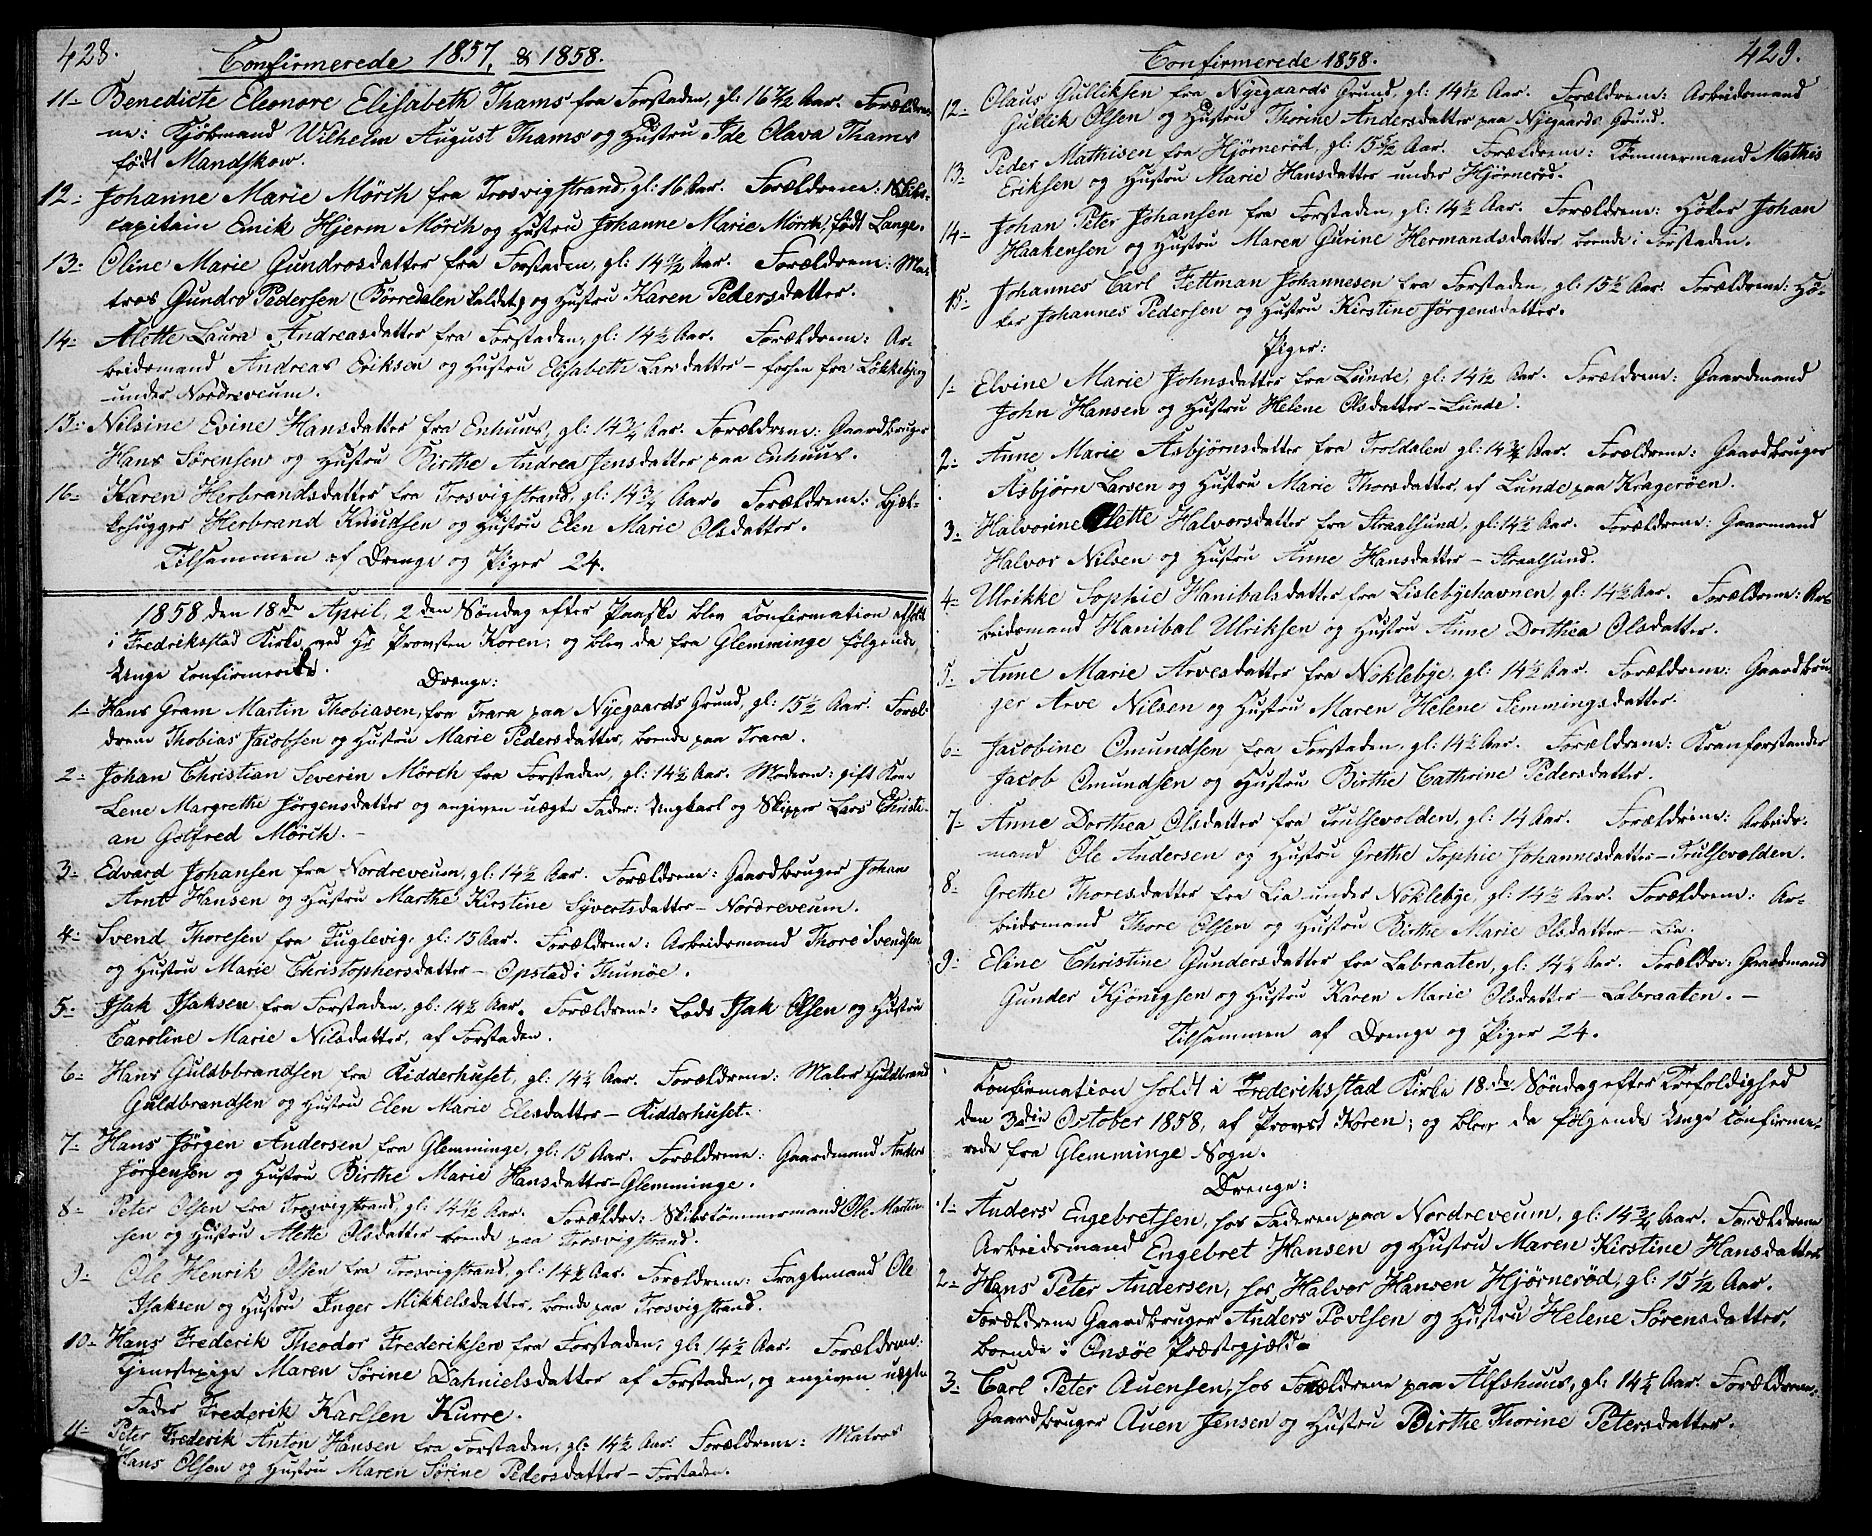 428.
Confirmerede 1857, & 1858.
11- Benedicte Eleonore Elisabeth Thams fra Forstaden, gl: 16 7/12 Aar. Forældre-
ne: Kjøbmand Wilhelm August Thams og Hustru Ide Olava Thams
født Mandskow.
12- Johanne Marie Mörch fra Trosvigstrand, gl: 16 Aar. Forældrene: Skibs-
capitain Enik Hjerm Mörch og Hustru Johanne Marie Mörch, født Lange.
13- Oline Marie Gundrosdatter fra Forstaden, gl: 14 Aar. Forældrene: Ma-
tros Gundro Pedersen (Börredalen kaldet) og Hustru Karen Pedersdatter.
14- Alette Laura Andreasdatter fra Forstaden, gl: 14½ Aar. Forældrene: Ar-
beidsmand Andreas Eriksen og Hustru Elisabeth Larsdatter – fra Løkkebjerg
under Nordreveum.
15- Nilsine Evine Hansdatter fra Enhuus, gl: 14¾ Aar. Forældrene: Gaardbruger
Hans Sørensen og Hustru Birthe Andrea Jensdatter paa Enhuus.
16- Karen Herbrandsdatter fra Trosvigstrand, gl: 14¾ Aar. Forældrene: Bjæl-
kehugger Herbrand Knudsen og Hustru Elen Marie Olsdatter.
Tilsammen af Drenge og Piger 24.
1858 den 18de April, 2den Søndag efter Paaske blev Confirmation afholdt
i Fredriksstad Kirke, ved Hr Provsten Koren; og blev da fra Glemminge følgende
Unge Confirmerede.
Drenge:
1- Hans Gram Martin Thobiasen, fra Trara paa Nyegaards Grund, gl: 15½ Aar. Foræl-
drene Thobias Jacobsen og Hustru Marie Pedersdatter, boende paa Trara.
2- Johan Christian Severin Mörch fra Forstaden, gl: 14½ Aar. Moderen: gift Kone
Lene Margrethe Jörgensdatter og angiven uægte Fader: Ungkarl og Skipper Lars Christi-
an Gotfred Mörch. –
3- Edvard Johansen fra Nordreveum, gl: 14½ Aar. Forældrene: Gaardbruger Johan
Arnt Hansen og Hustru Marthe Kirstine Syvertsdatter – Nordreveum.
4- Svend Thoresen fra Fuglevig, gl: 15 Aar. Forældrene: Arbeidsmand Thore Svendsen
og Hustru Marie Christophersdatter – Opstad i Thunöe.
5- Isak Isaksen fra Forstaden, gl: 14½ Aar. Forældrene: Lods Isak Olsen og Hustru
Caroline Marie Nilsdatter, af Forstaden.
6- Hans Guldbrandsen fra Kidderhuset, gl: 14½ Aar. Forældrene: Maler Guldbrand
Guldbrandsen og Hustru Elen Marie Elesdatter – Kidderhuset.
7- Hans Jörgen Andersen fra Glemminge, gl: 15 Aar. Forældrene: Gaardmand Anders
Jörgensen og Hustru Birthe Marie Hansdatter – Glemminge.
8- Peter Olsen fra Trosvigstrand, gl: 14½ Aar. Forældre: Skibstömmermand Ole Martin-
sen og Hustru Alette Olsdatter boende paa Trosvigstrand.
9- Ole Henrik Olsen fra Trosvigstrand, gl: 14½ Aar. Forældrene: Fragtemand Ole
Isaksen og Hustru Inger Mikkelsdatter, boende paa Trosvigstrand.
10- Hans Frederik Theodor Frederiksen fra Forstaden, gl: 14½ Aar. Forældrene:
Tjenestepige Maren Sörine Dahnielsdatter af Forstaden, og angiven uægte
Fader Frederik Karlsen Kurre.
11- Peter Frederik Anton Hansen fra Forstaden, gl: 14½ Aar. Forældrene: Matros
Hans Olsen og Hustru Maren Sörine Pedersdatter – Forstaden.
429.
Confirmerede 1858.
12- Olaus Gulliksen fra Nyegaards Grund, gl: 14½ Aar. Forældrene: Arbeidsmand
Gullik Olsen og Hustru Thorine Andersdatter paa Nyegaards Grund.
13- Peder Mathisen fra Hjørnerød, gl: 15 5/12 Aar. Forældrene: Tømmermand Mathis
Eriksen og Hustru Marie Hansdatter under Hjørnerød.
14- Johan Peter Johansen fra Forstaden, gl: 14½ Aar. Forældrene: Höker Johan
Haakensen og Hustru Maren Gurine Hermandsdatter boende i Forstaden.
15- Johannes Carl Fettman Johannesen fra Forstaden, gl: 15½ Aar. Forældrene: Hö-
ker Johannes Pedersen og Hustru Kirstine Jörgensdatter.
Piger:
1- Elvine Marie Johnsdatter fra Lunde, gl: 14½ Aar. Forældrene: Gaardmand
John Hansen og Hustru Helene Olsdatter – Lunde.
2- Anne Marie Asbjørnsdatter fra Troldalen gl: 14¾ Aar. Forældrene: Gaardbruger
Asbjørn Larsen og Hustru Marie Thorsdatter, af Lunde paa Kragerøen.
3- Halvorine Olette Halvorsdatter fra Straalsund, gl: 14½ Aar. Forældrene: Gaarmand
Halvor Nilsen og Hustru Anne Hansdatter – Straalsund.
4- Ulrikke Sophie Hanibalsdatter fra Lislebyehavnen, gl: 14½ Aar. Forældrene: Ar-
beidsmand Hanibal Ulriksen og Hustru Anne Dorthea Olsdatter.
5- Anne Marie Arvesdatter fra Noklebye, gl: 14½ Aar. Forældrene: Gaardbru-
ger Arve Nilsen og Hustru Maren Helene Semmingsdatter.
6- Jacobine Omundsen fra Forstaden, gl: 14½ Aar. Forældrene: Kranforstander
Jacob Omundsen og Hustru Birthe Cathrine Pedersdatter.
7- Anne Dorthea Olsdatter fra Trulsevolden, gl: 14 Aar. Forældrene: Arbeids-
mand Ole Andersen og Hustru Grethe Sophie Johannesdatter – Trulsevolden.
8- Grethe Thoresdatter fra Lia under Noklebye, gl: 14½ Aar. Forældrene: Ar-
beidsmand Thore Olsen og Hustru Birthe Marie Olsdatter – Lia.
9- Eline Christine Gundersdatter fra Labraaten, gl: 14½ Aar. Forældre: Gaardmand
Gunder Kjönigsen og Hustru Karen Marie Olsdatter – Labraaten. –
Tilsammen af Drenge og Piger 24.
Confirmation holdt i Frederiksstad Kirke 18de Søndag efter Trefoldighed
den 3die October 1858, af Provst Koren; og blev da følgende Unge Confirme-
rede fra Glemminge Sogn.
Drenge:
1- Anders Engebretsen, hos Faderen paa Nordreveum, gl: 14¾ Aar. Forældrene
Arbeidsmand Engebret Hansen og Hustru Maren Kirstine Hansdatter.
2- Hans Peter Andersen, hos Halvor Hansen Hjørnerød, gl: 15½ Aar.
Forældrene Gaardbruger Anders Povlsen og Hustru Helene Sørensdatter,
boende i Onsöe Præstegjæld.
3- Carl Peter Auensen, hos Forældrene paa Alfshuus, gl: 14½ Aar. Forældrene:
Gaardbruger Auen Jensen og Hustru Birthe Thorine Petersdatter.